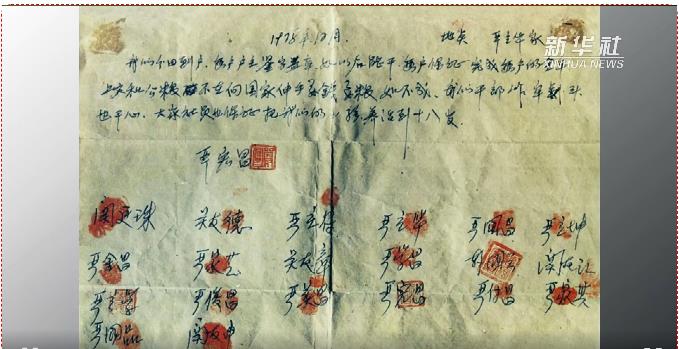 1978年12月. 地点 严立华家
我们分田到户，每户户主签字盖章，如以后能干，每户保证完成每户的全年
上交和公粮，不在向国家伸手要钱要粮，如不成，我们干部作牢杀头
也干心，大家社员也保证把我们的小孩养活到十八岁。
新华社
XINHUANET
严宏昌
关廷珠 关友德 严立符 严立华 严国昌 严立坤
严金昌 严家芝 关友章 严学昌 韩国云 关友江
严立学 严俊昌 严美昌 严宏昌 严付昌 严家其
严国品 关友申